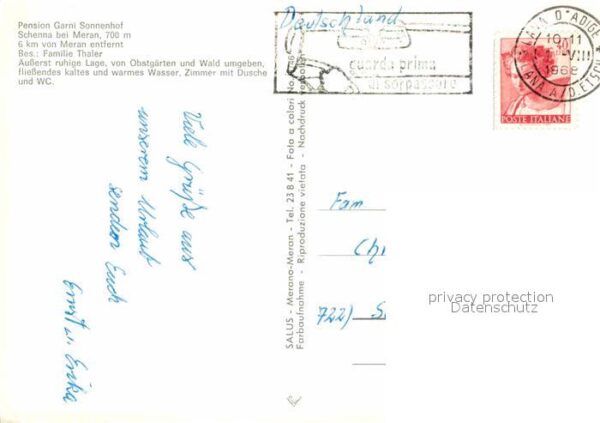 Pension Garni Sonnenhof
Schenna bei Meran, 700 m
6 km von Meran entfernt
Bes.: Familie Thaler
Äußerst ruhige Lage, von Obstgärten und Wald umgeben,
fließendes kaltes und warmes Wasser, Zimmer mit Dusche
und WC.
Viele Grüße aus
unserem Urlaub
senden Euch
Ernst u. Erika
SALUS - Merano-Meran - Tel. 23 8 41 - Foto a colori No.
Farbaufnahme - Riproduzione vietata - Nachdruck verboten
Deutschland
guarda prima
di sorpassare
D'ADIGE
19.11
VIII
1968
LANA A/D.ETSCH
POSTE ITALIANE
Fam
Ch
722) S
privacy protection
Datenschutz